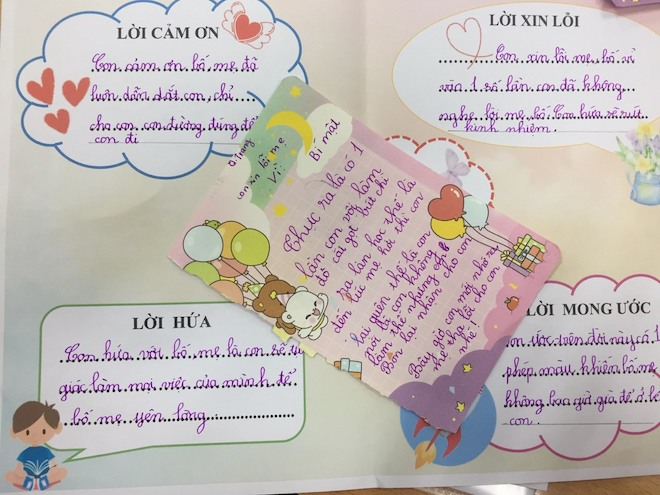 LỜI CẢM ƠN
Con cảm ơn bố mẹ đã
luôn dẫn dắt con, chỉ
cho con con đường đúng để
con đi
LỜI XIN LỖI
Con xin lỗi mẹ, bố vì
vào 1 số lần con đã không
nghe lời mẹ, bố. Con hứa sẽ rút
kinh nghiệm.
ở trang
con ... bố mẹ
Vì:
Bí mật
Thực ra là có 1
lần con vội làm
đồ cái gọt bút chì
ra lần học thế là
đến lúc mẹ hỏi thì con
lại quên thế là con
nói là con không
làm thế nhưng
Bốn lại nhăn cho con
Bây giờ con mấy nhớ ra
mẹ tha lỗi cho con
nhé!
LỜI HỨA
Con hứa với bố mẹ là con sẽ tự
giác làm mọi việc của mình để
bố mẹ yên lòng
LỜI MONG ƯỚC
Con ước trên đời này có 1
phép màu khiến bố mẹ
không bao giờ già để ở b
con.